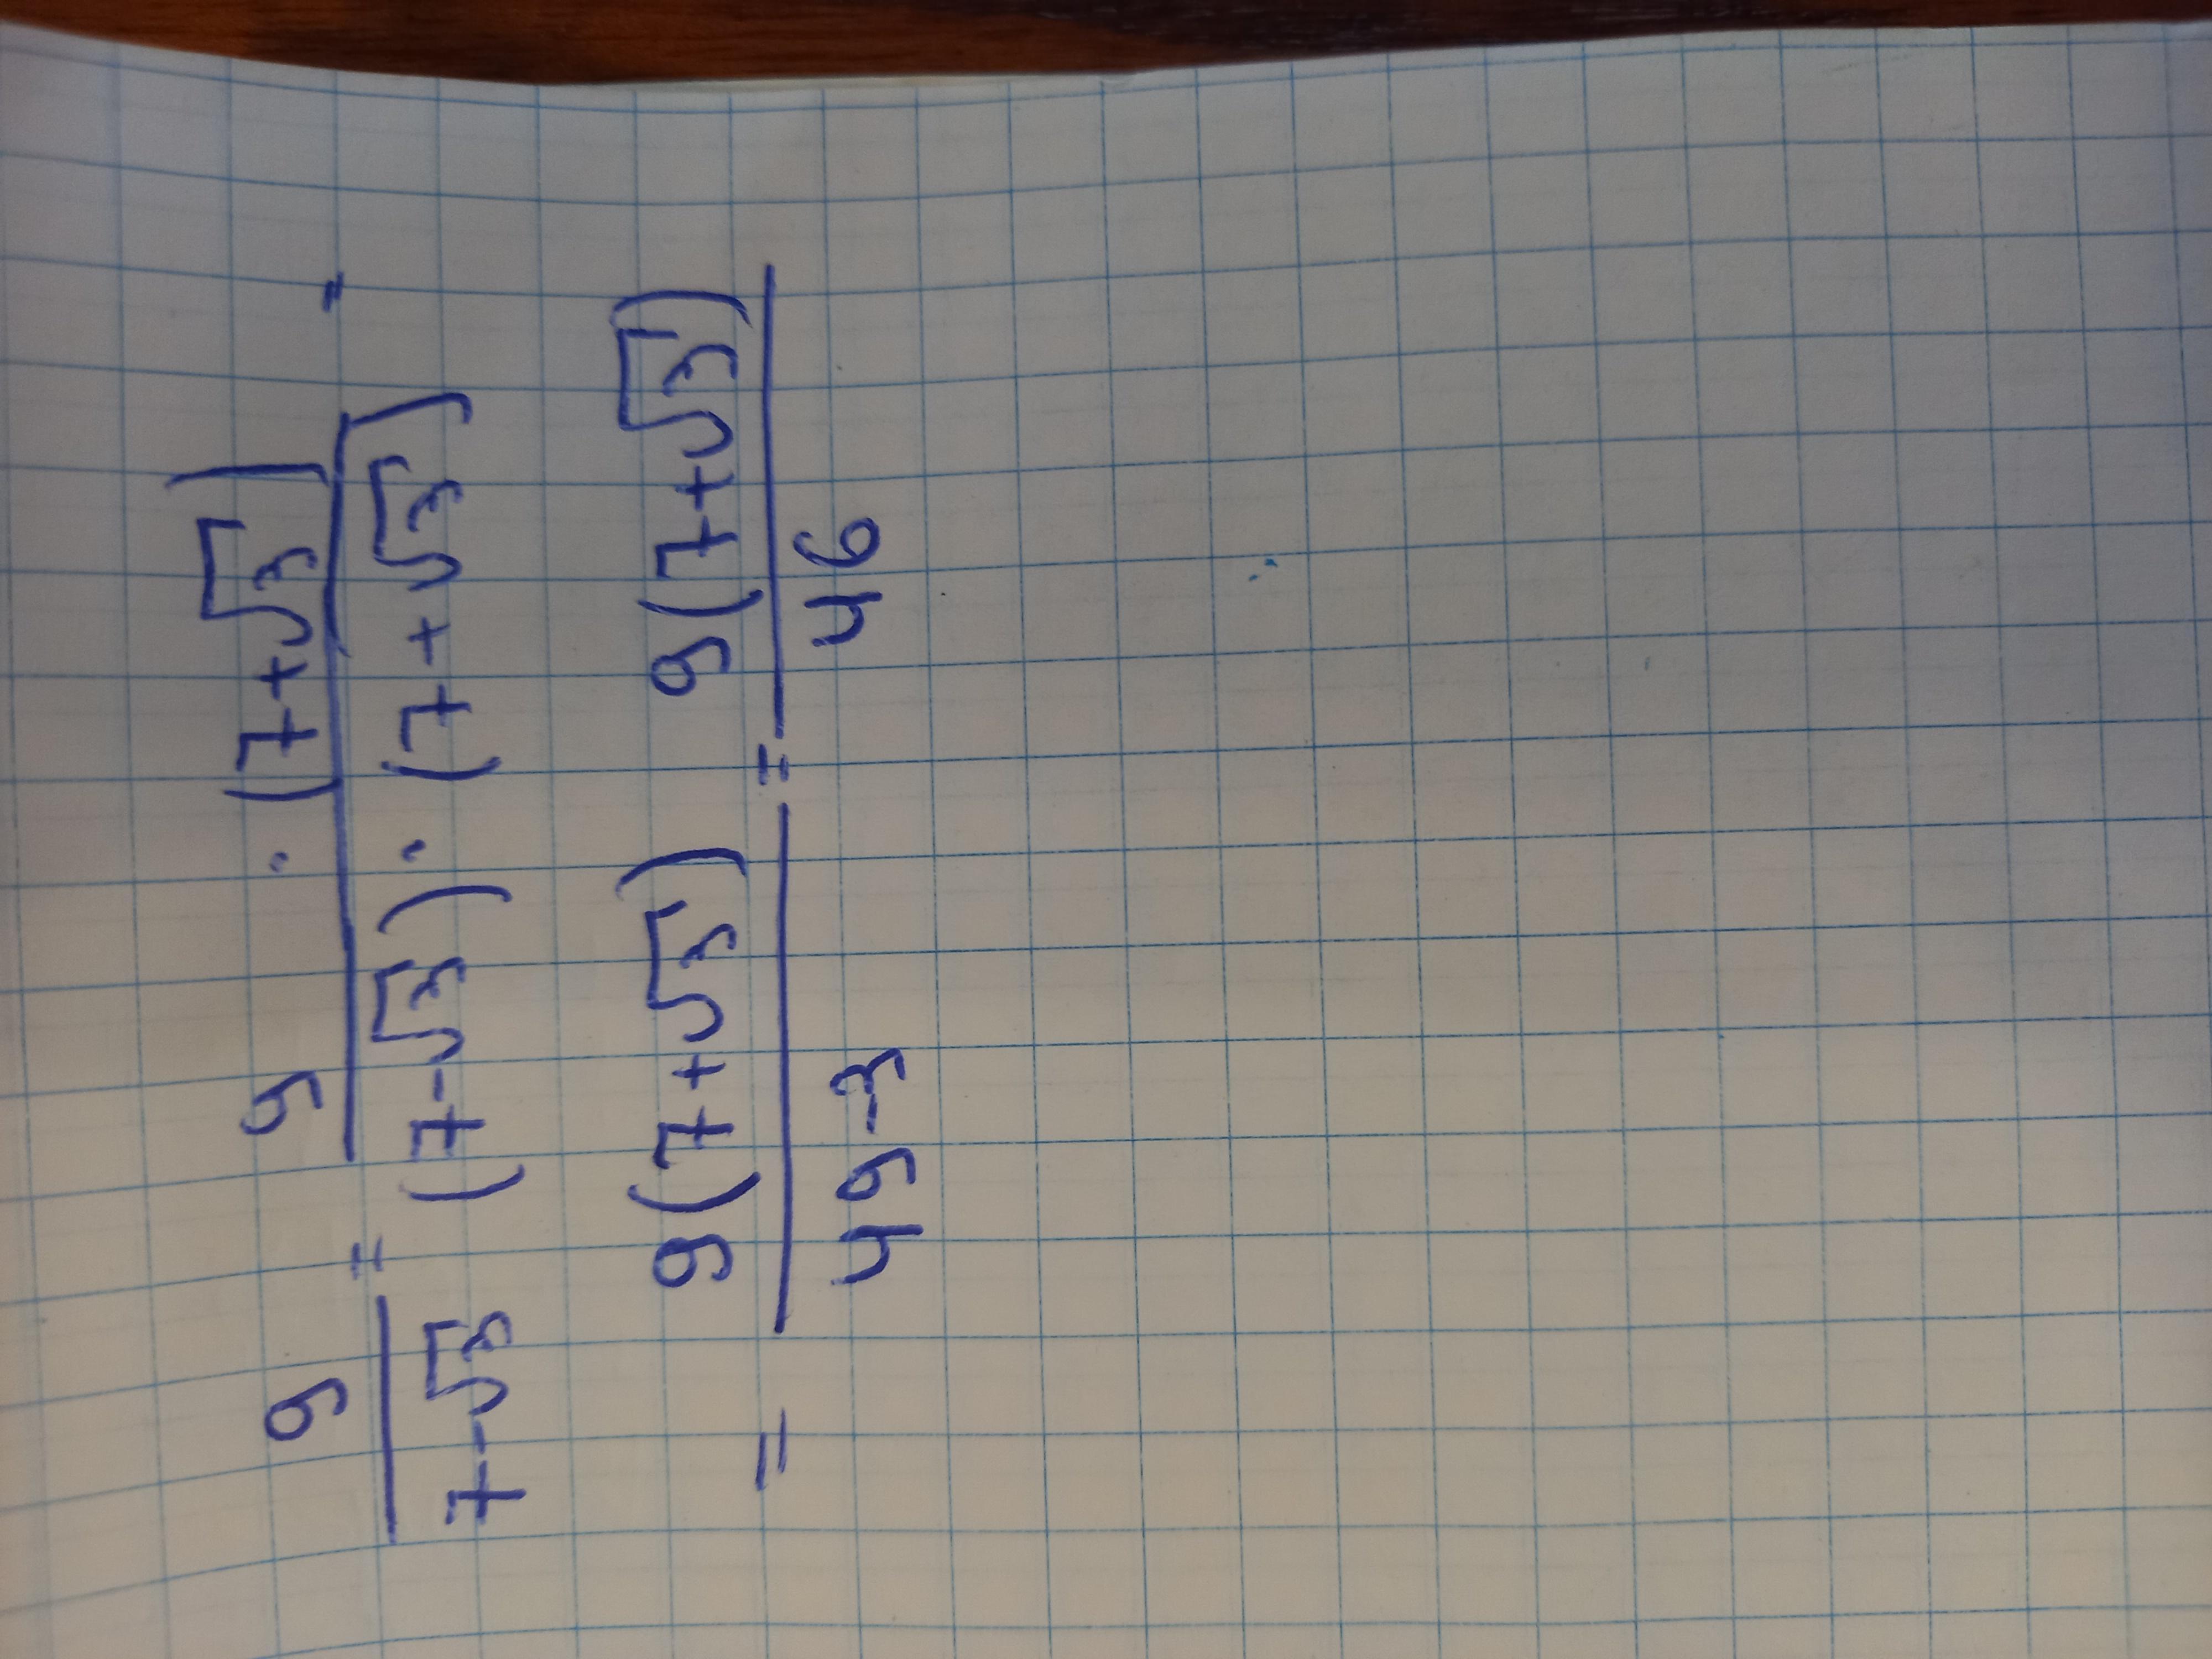 9/(7-√3) = 9 · (7+√3)/(7-√3) · (7+√3) =
= 9(7+√3)/49-3 = 9(7+√3)/46